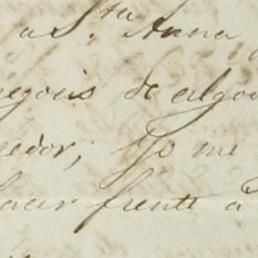 a Sta Anna
negocio de algo
nedor; Yo me
hacer frente a